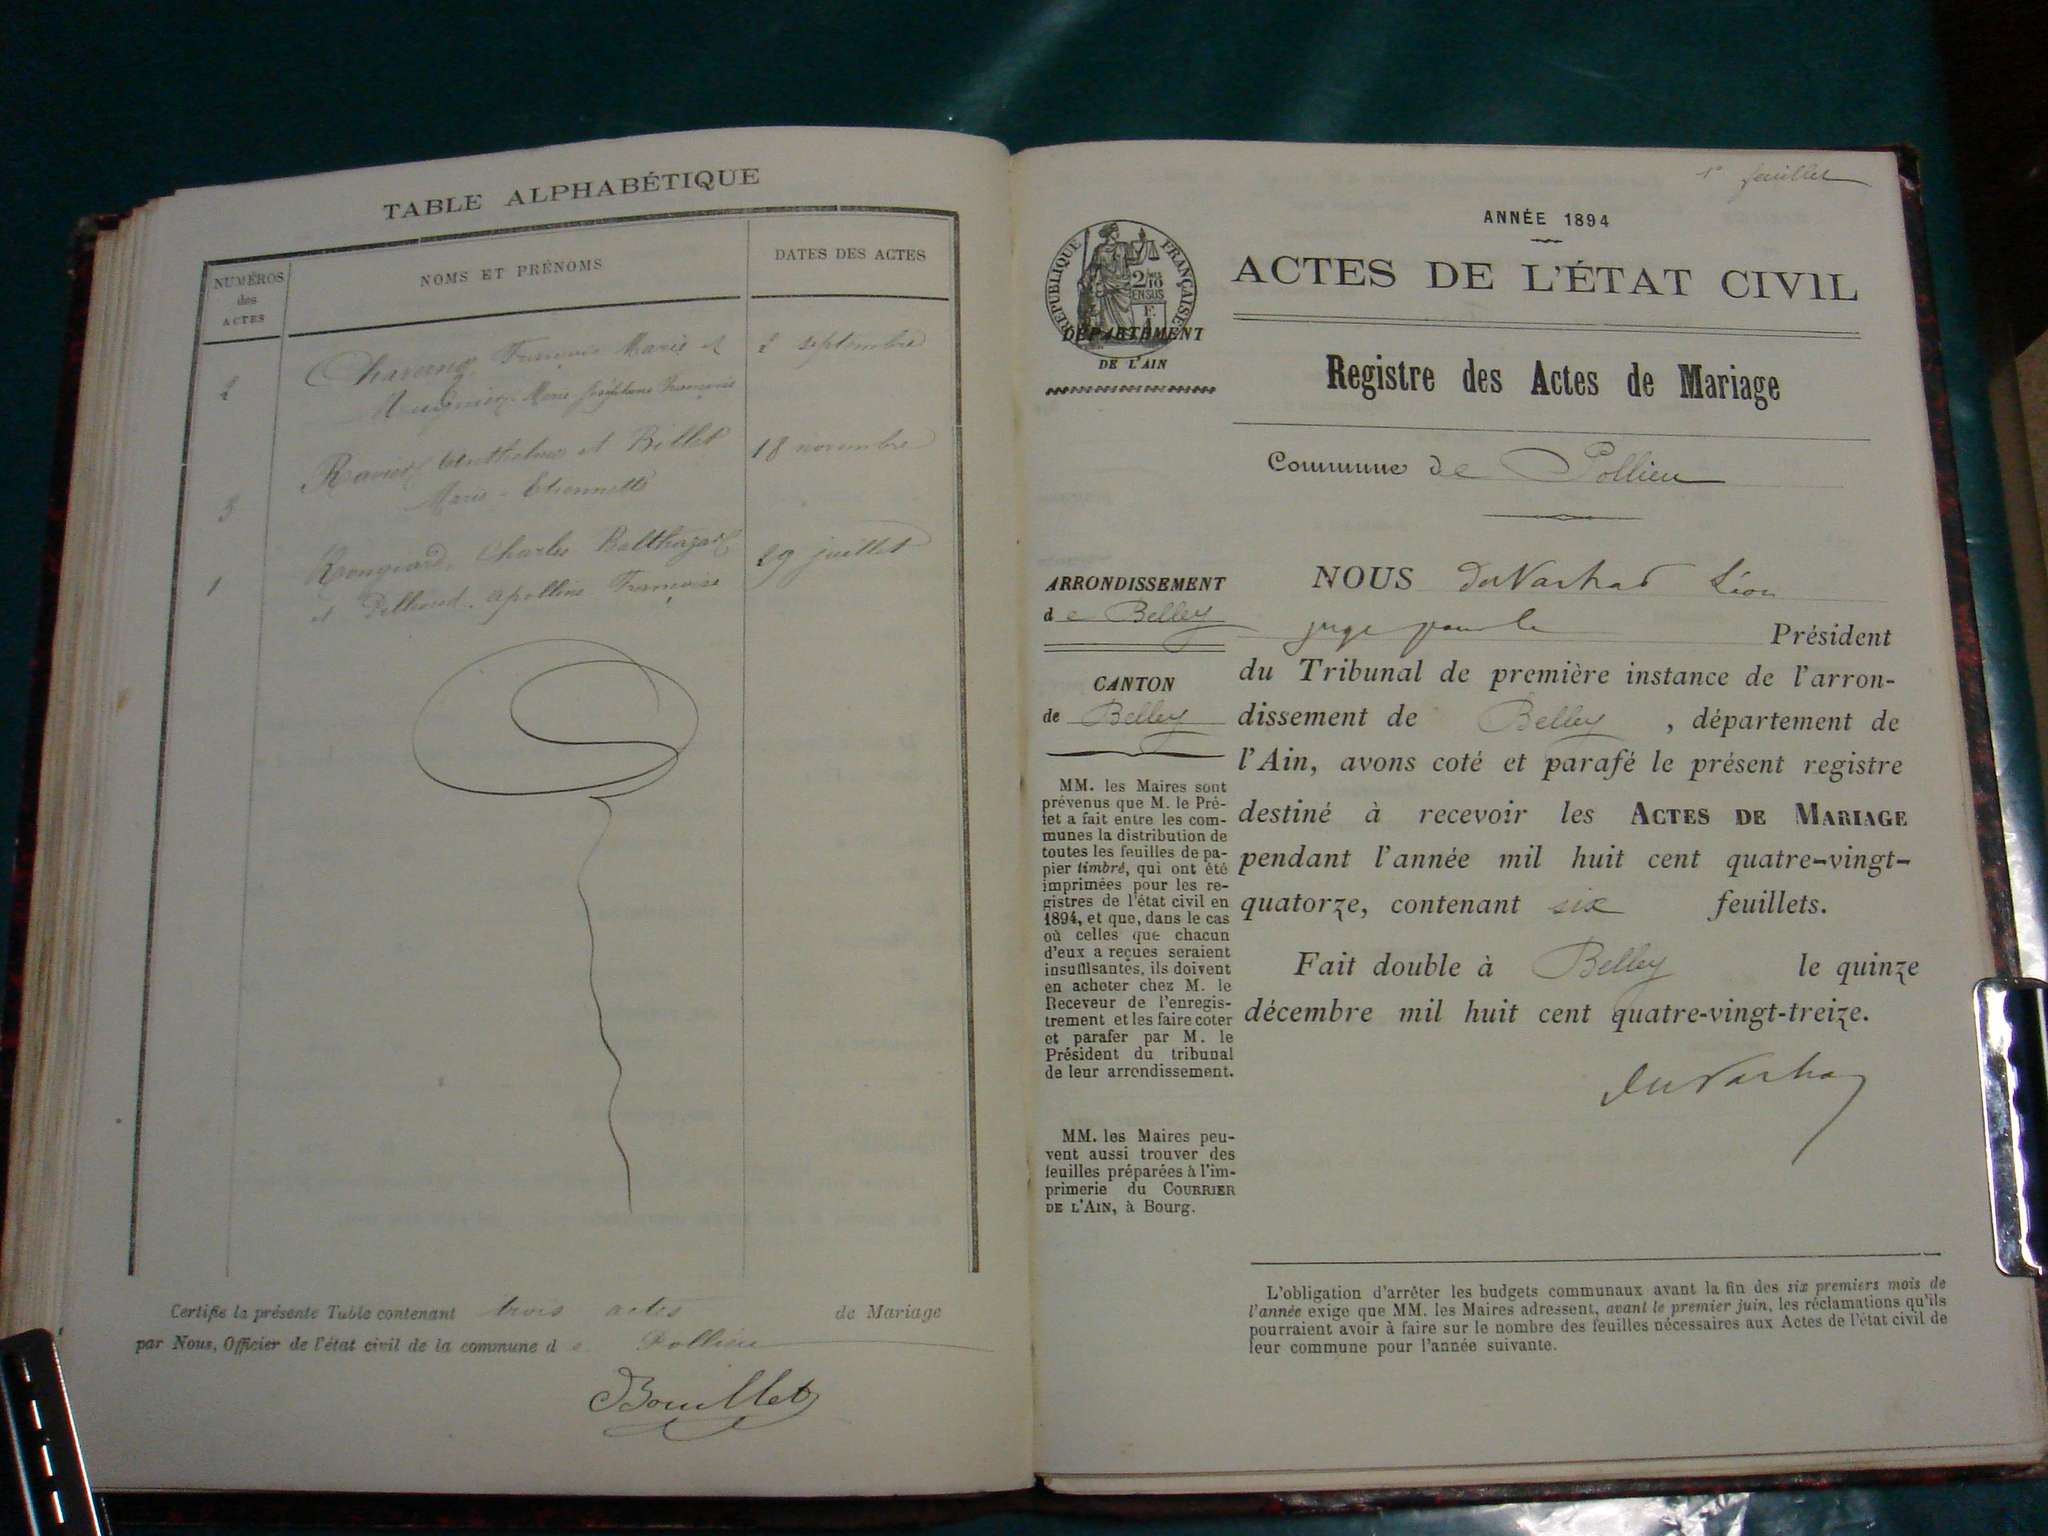 TABLE ALPHABÉTIQUE
NUMÉROS
des
ACTES
NOMS ET PRÉNOMS
DATES DES ACTES
2
François Marie et
2 septembre
Marie Joséphine Françoise
3
Ravier Anthelme et Billet
18 novembre
Marie-Etiennette
1
Charles Balthazard
29 juillet
et Apolline Françoise
Certifie la présente Table contenant trois actes de Mariage
par Nous, Officier de l'état civil de la commune de Pollieu
Bouillet
1er feuillet
ANNÉE 1894
RÉPUBLIQUE FRANÇAISE
2/10
EN SUS
DÉPARTEMENT
DE L'AIN
ACTES DE L'ÉTAT CIVIL
Registre des Actes de Mariage
Commune de Pollieu
ARRONDISSEMENT
de Belley
CANTON
de Belley
MM. les Maires sont
prévenus que M. le Pré-
fet a fait entre les com-
munes la distribution de
toutes les feuilles de pa-
pier timbré, qui ont été
imprimées pour les re-
gistres de l'état civil en
1894, et que, dans le cas
où celles que chacun
d'eux a reçues seraient
insuffisantes, ils doivent
en acheter chez M. le
Receveur de l'enregis-
trement et les faire coter
et parafer par M. le
Président du tribunal
de leur arrondissement.
MM. les Maires peu-
vent aussi trouver des
feuilles préparées à l'im-
primerie du COURRIER
DE L'AIN, à Bourg.
NOUS Léon
juge pour le Président
du Tribunal de première instance de l'arron-
dissement de Belley, département de
l'Ain, avons coté et parafé le présent registre
destiné à recevoir les ACTES DE MARIAGE
pendant l'année mil huit cent quatre-vingt-
quatorze, contenant six feuillets.
Fait double à Belley le quinze
décembre mil huit cent quatre-vingt-treize.
L'obligation d'arrêter les budgets communaux avant la fin des six premiers mois de
l'année exige que MM. les Maires adressent, avant le premier juin, les réclamations qu'ils
pourraient avoir à faire sur le nombre des feuilles nécessaires aux Actes de l'état civil de
leur commune pour l'année suivante.